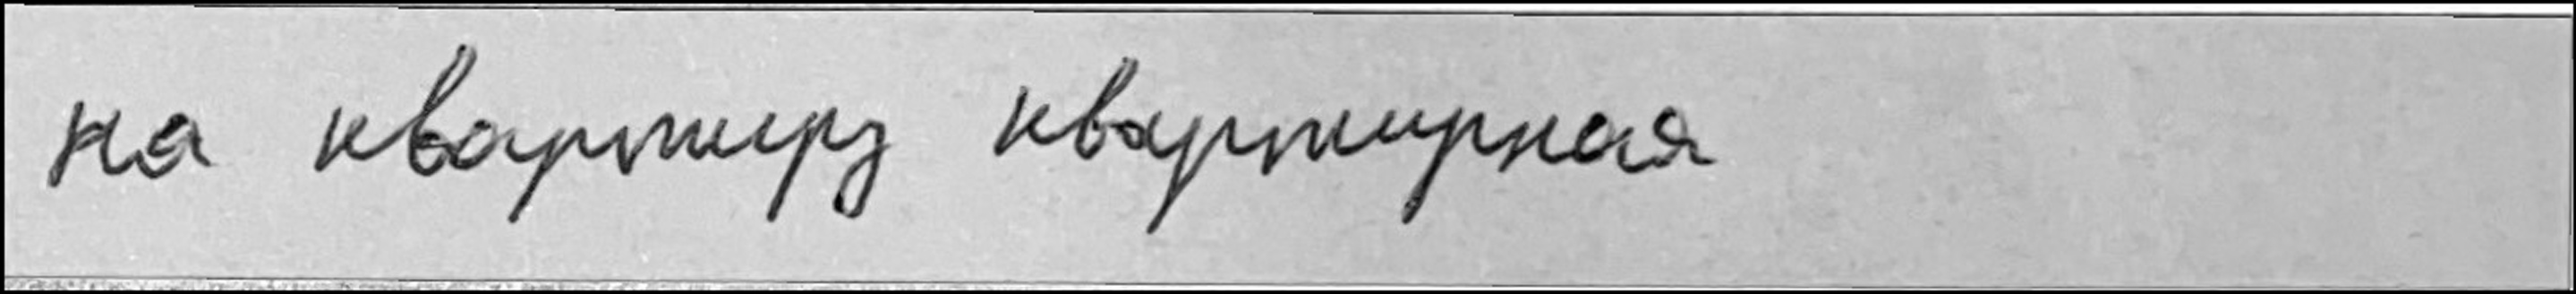 на квартиру квартирная